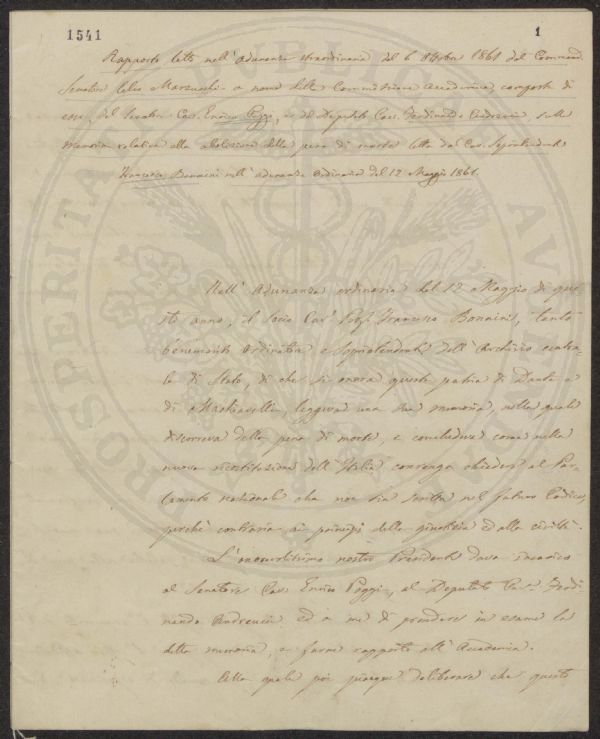 1541
1
Rapporto letto nell'Adunanza straordinaria del 6 Ottobre 1861 dal Commend.
Senatore Celso Marzucchi a nome della Commissione Accademica composta di
esso, del Senator Cav. Enrico Poggi, e del Deputato Cav. Ferdinando Andreucci, sulla
memoria relativa alla abolizione della pena di morte letta dal Cav. Soprintendente
Francesco Bonaini nell'adunanza ordinaria del 12 Maggio 1861.
Nell'Adunanza ordinaria del 12 Maggio di que-
st'anno, il Socio Cav. Prof. Francesco Bonaini, tanto
benemerito Ordinatore e Soprintendente dell'Archivio centra-
le di Stato, di che si onora questa patria di Dante e
di Machiavelli, leggeva una sua memoria, nella quale
discorreva della pena di morte, e concludeva come nella
nuova ricostituzione dell'Italia convenga chiedere al Par-
lamento nazionale che non sia scritta nel futuro Codice,
perchè contraria ai principj della giustizia ed alla civiltà.
L'onorevolissimo nostro Presidente dava incarico
al Senatore Cav. Enrico Poggi, al Deputato Cav. Ferdi-
nando Andreucci ed a me di prendere in esame la
detta memoria, e farne rapporto all'Accademia.
Alla quale poi piacque deliberare che questo
PROSPERITATI PUBLICAE AUGENDAE